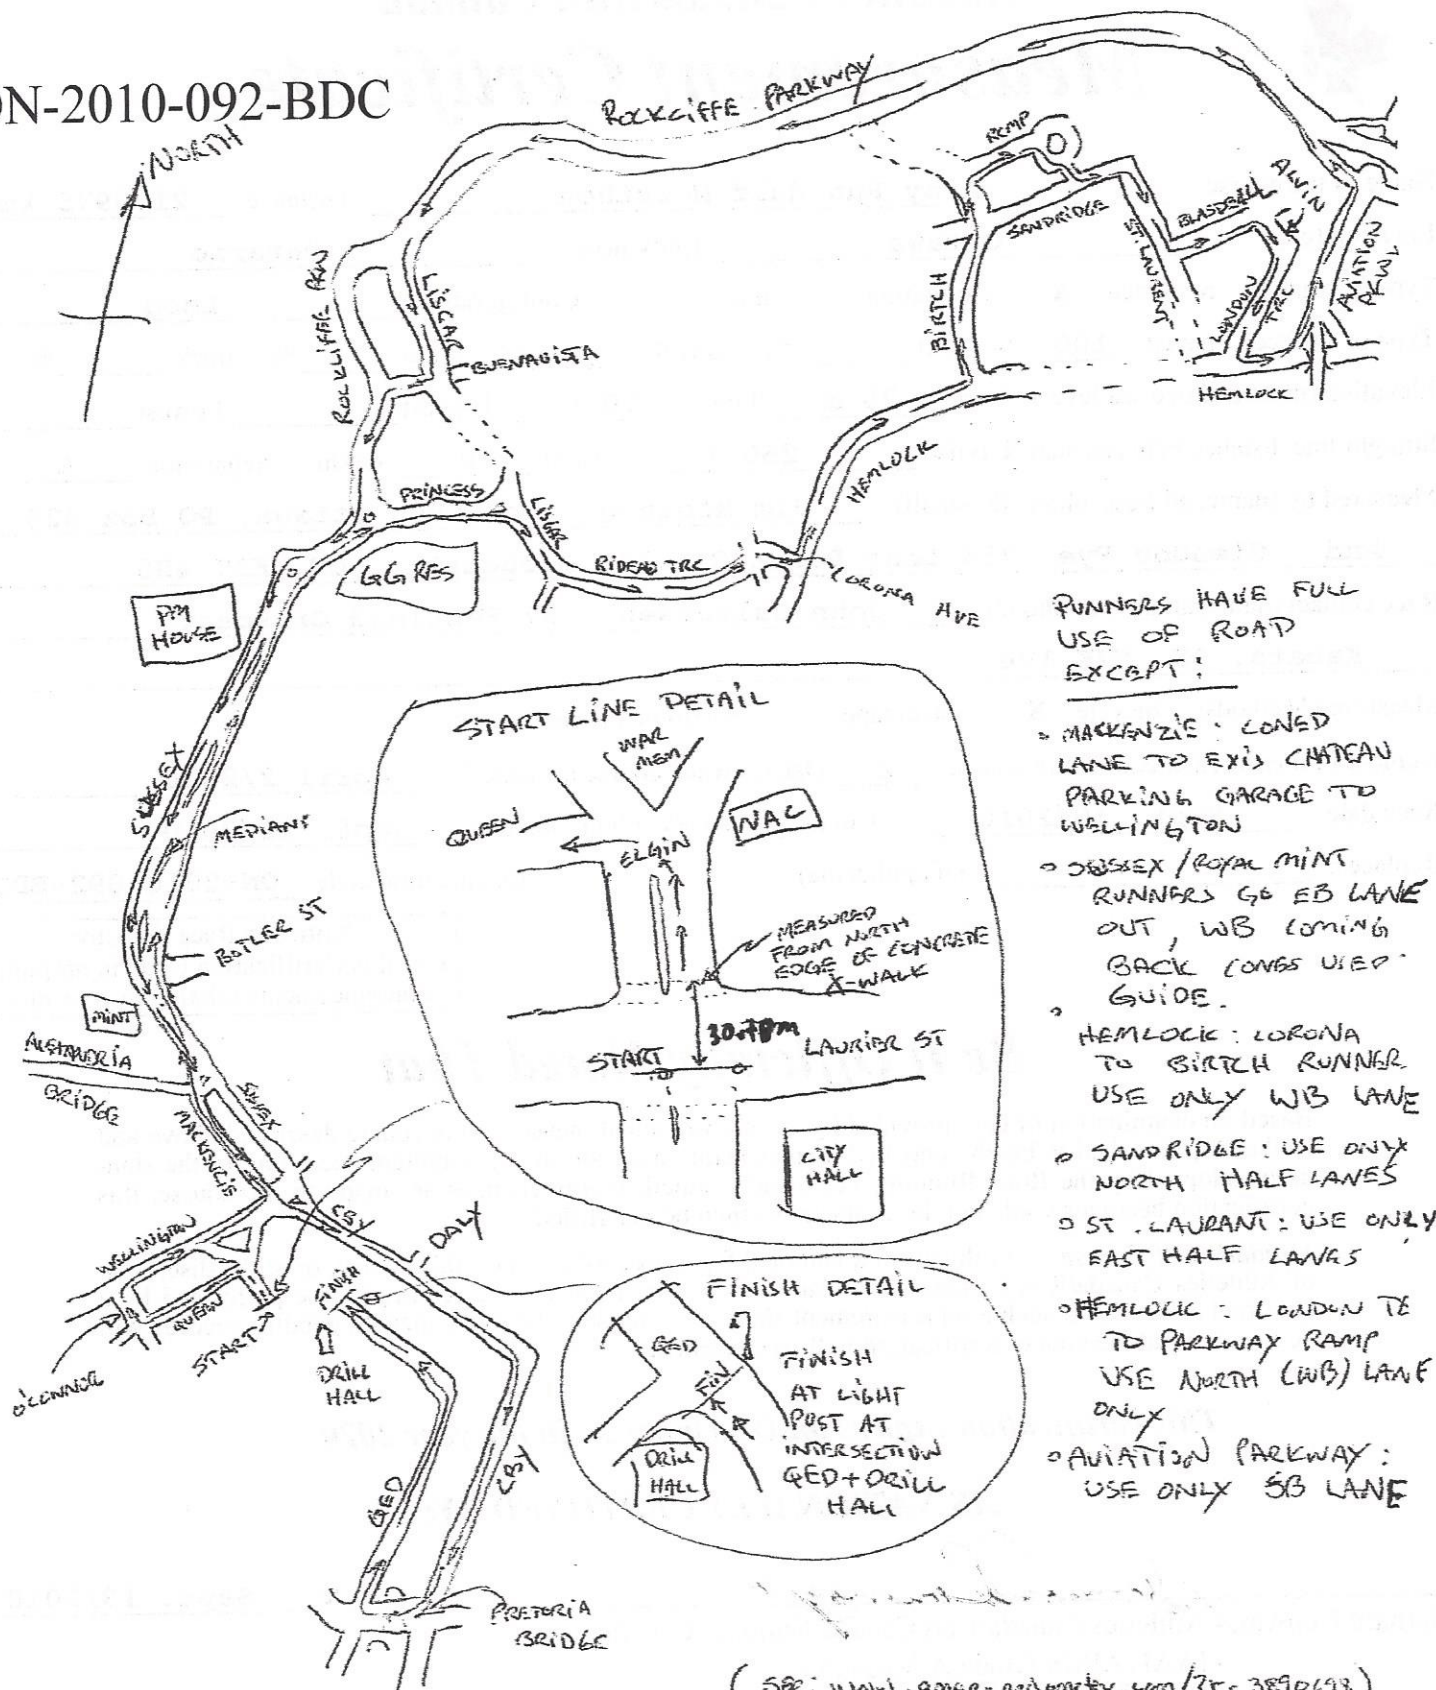 ON-2010-092-BDC
NORTH
ROCKCLIFFE PARKWAY
RCMP
SANDRIDGE
ST. LAURENT
BLASDELL
ALVIN
LONDON
TRC
AVIATION
PKWY
BIRTCH
HEMLOCK
HEMLOCK
ROCKLIFFE PKW
LISGAR
BUENAVISTA
PRINCESS
LISGAR
RIDEAU TRC
CORONA AVE
GG RES
PM
HOUSE
SUSSEX
MEDIANS
BOTLER ST
MINT
ALEXANDRIA
BRIDGE
SUSSEX
MACKENZIE
WELLINGTON
CBY
DALY
QUEEN
START
FINISH
O'CONNOR
DRILL
HALL
QED
CBY
PRETORIA
BRIDGE
START LINE DETAIL
WAR
MEM
QUEEN
ELGIN
NAC
MEASURED
FROM NORTH
EDGE OF CONCRETE
X-WALK
30.78m
START
LAURIER ST
CITY
HALL
FINISH DETAIL
QED
FIN
DRILL
HALL
FINISH
AT LIGHT
POST AT
INTERSECTION
QED + DRILL
HALL
RUNNERS HAVE FULL
USE OF ROAD
EXCEPT:
• MACKENZIE: CONED
LANE TO EXIS CHATEAU
PARKING GARAGE TO
WELLINGTON
• SUSSEX / ROYAL MINT
RUNNERS GO EB LANE
OUT, WB COMING
BACK CONES USED
GUIDE.
• HEMLOCK: CORONA
TO BIRTCH RUNNER
USE ONLY WB LANE
• SANDRIDGE: USE ONLY
NORTH HALF LANES
• ST. LAURANT: USE ONLY
EAST HALF LANES
• HEMLOCK: LONDON TE
TO PARKWAY RAMP
USE NORTH (WB) LANE
ONLY
• AVIATION PARKWAY:
USE ONLY SB LANE
(SEE: www.gmap-pedometer.com/?r=3890698)